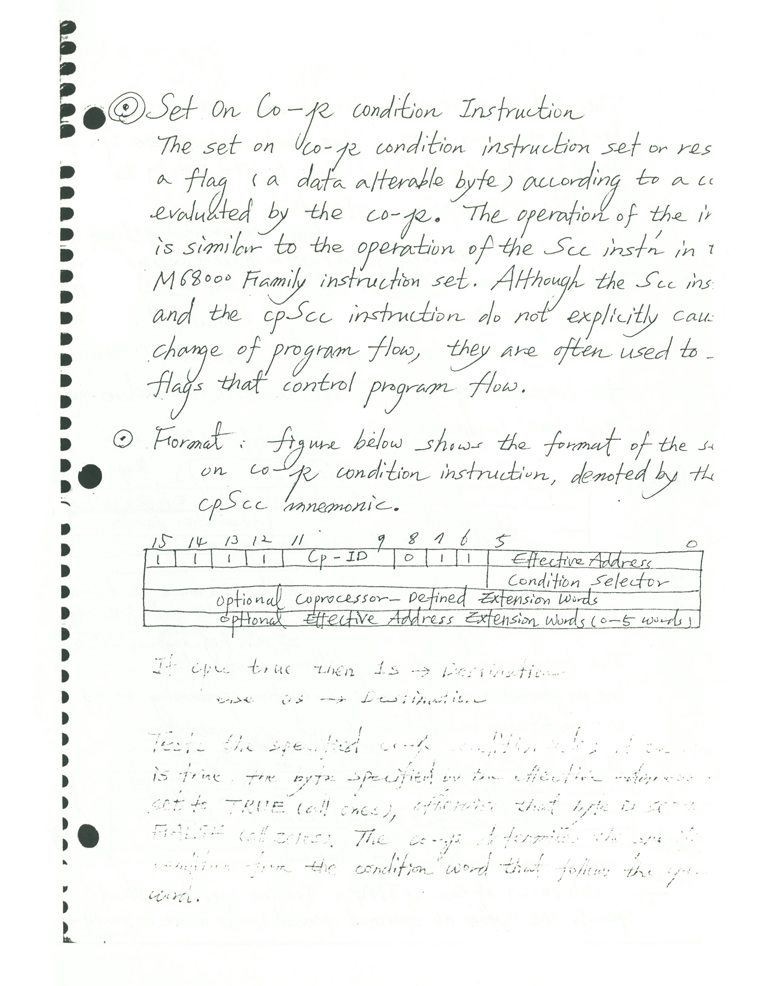 Set On Co-p condition Instruction
The set on co-p condition instruction set or res
a flag (a data alterable byte) according to a
evaluated by the co-p. The operation of the
is similar to the operation of the Scc instn in
M68000 Family instruction set. Although the Scc ins
and the cpScc instruction do not explicitly cau
change of program flow, they are often used to
flags that control program flow.
Format : figure below shows the format of the
on co-p condition instruction, denoted by the
cpScc mnemonic.
15 14 13 12 11 9 8 7 6 5 0
1 1 1 1 Cp-ID 0 1 1 Effective Address
Condition Selector
optional Coprocessor-Defined Extension Words
optional Effective Address Extension Words (0-5 words)
If true then 1s → Destination
else 0s → Destination
Tests the specified co-p condition
is true, the byte specified by the effective
set to TRUE (all ones), otherwise that byte is
FALSE (all zeros). The co-p determines
condition from the condition word that follows the
word.